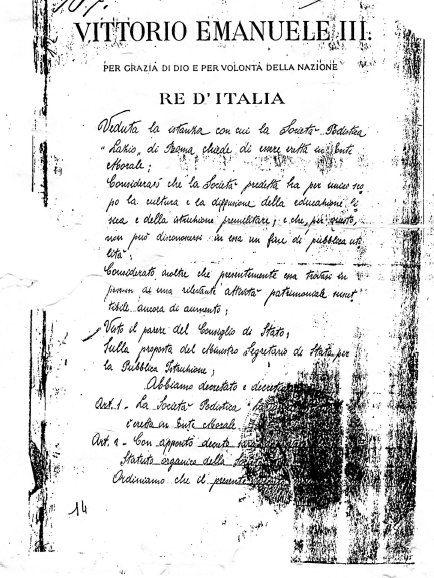 VITTORIO EMANUELE III.
PER GRAZIA DI DIO E PER VOLONTÀ DELLA NAZIONE
RE D'ITALIA
Veduta la istanza con cui la Società Podistica
"Lazio" di Roma chiede di essere eretta in Ente
Morale;
Considerato che la Società predetta ha per unico sco
po la cultura e la diffusione della educazione fi
sica e della istruzione premilitare; e che, per questo,
non può disconoscersi in essa un fine di pubblica uti
lità;
Considerato inoltre che presentemente essa trovasi in
di una rilevante attività patrimoniale suscet
tibile ancora di aumento;
Visto il parere del Consiglio di Stato;
Sulla proposta del Ministro Segretario di Stato per
la Pubblica Istruzione;
Abbiamo decretato e
Art. 1 - La Società Podistica
è eretta in Ente Morale
Art. 2 - Con apposito decreto sarà
Statuto organico della
Ordiniamo che il presente
14